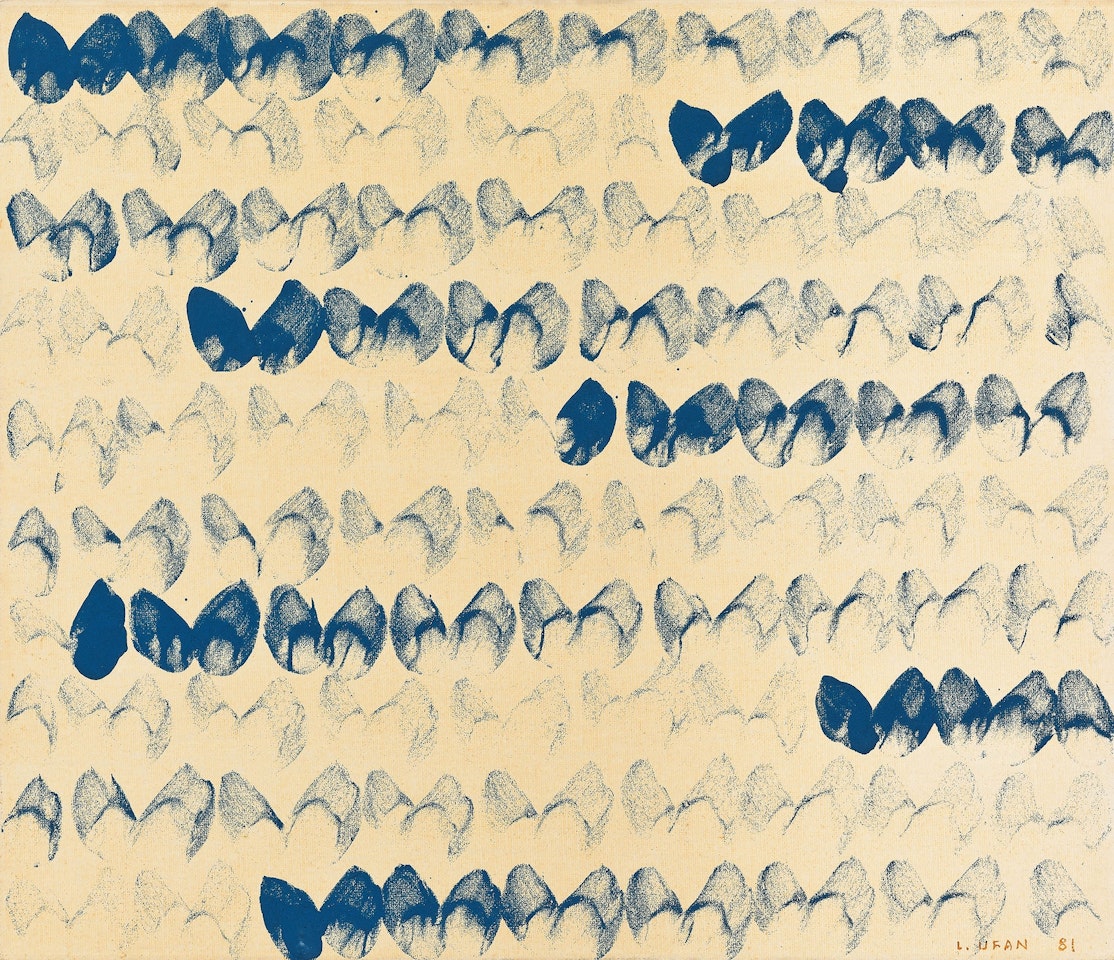 L. UFAN 81